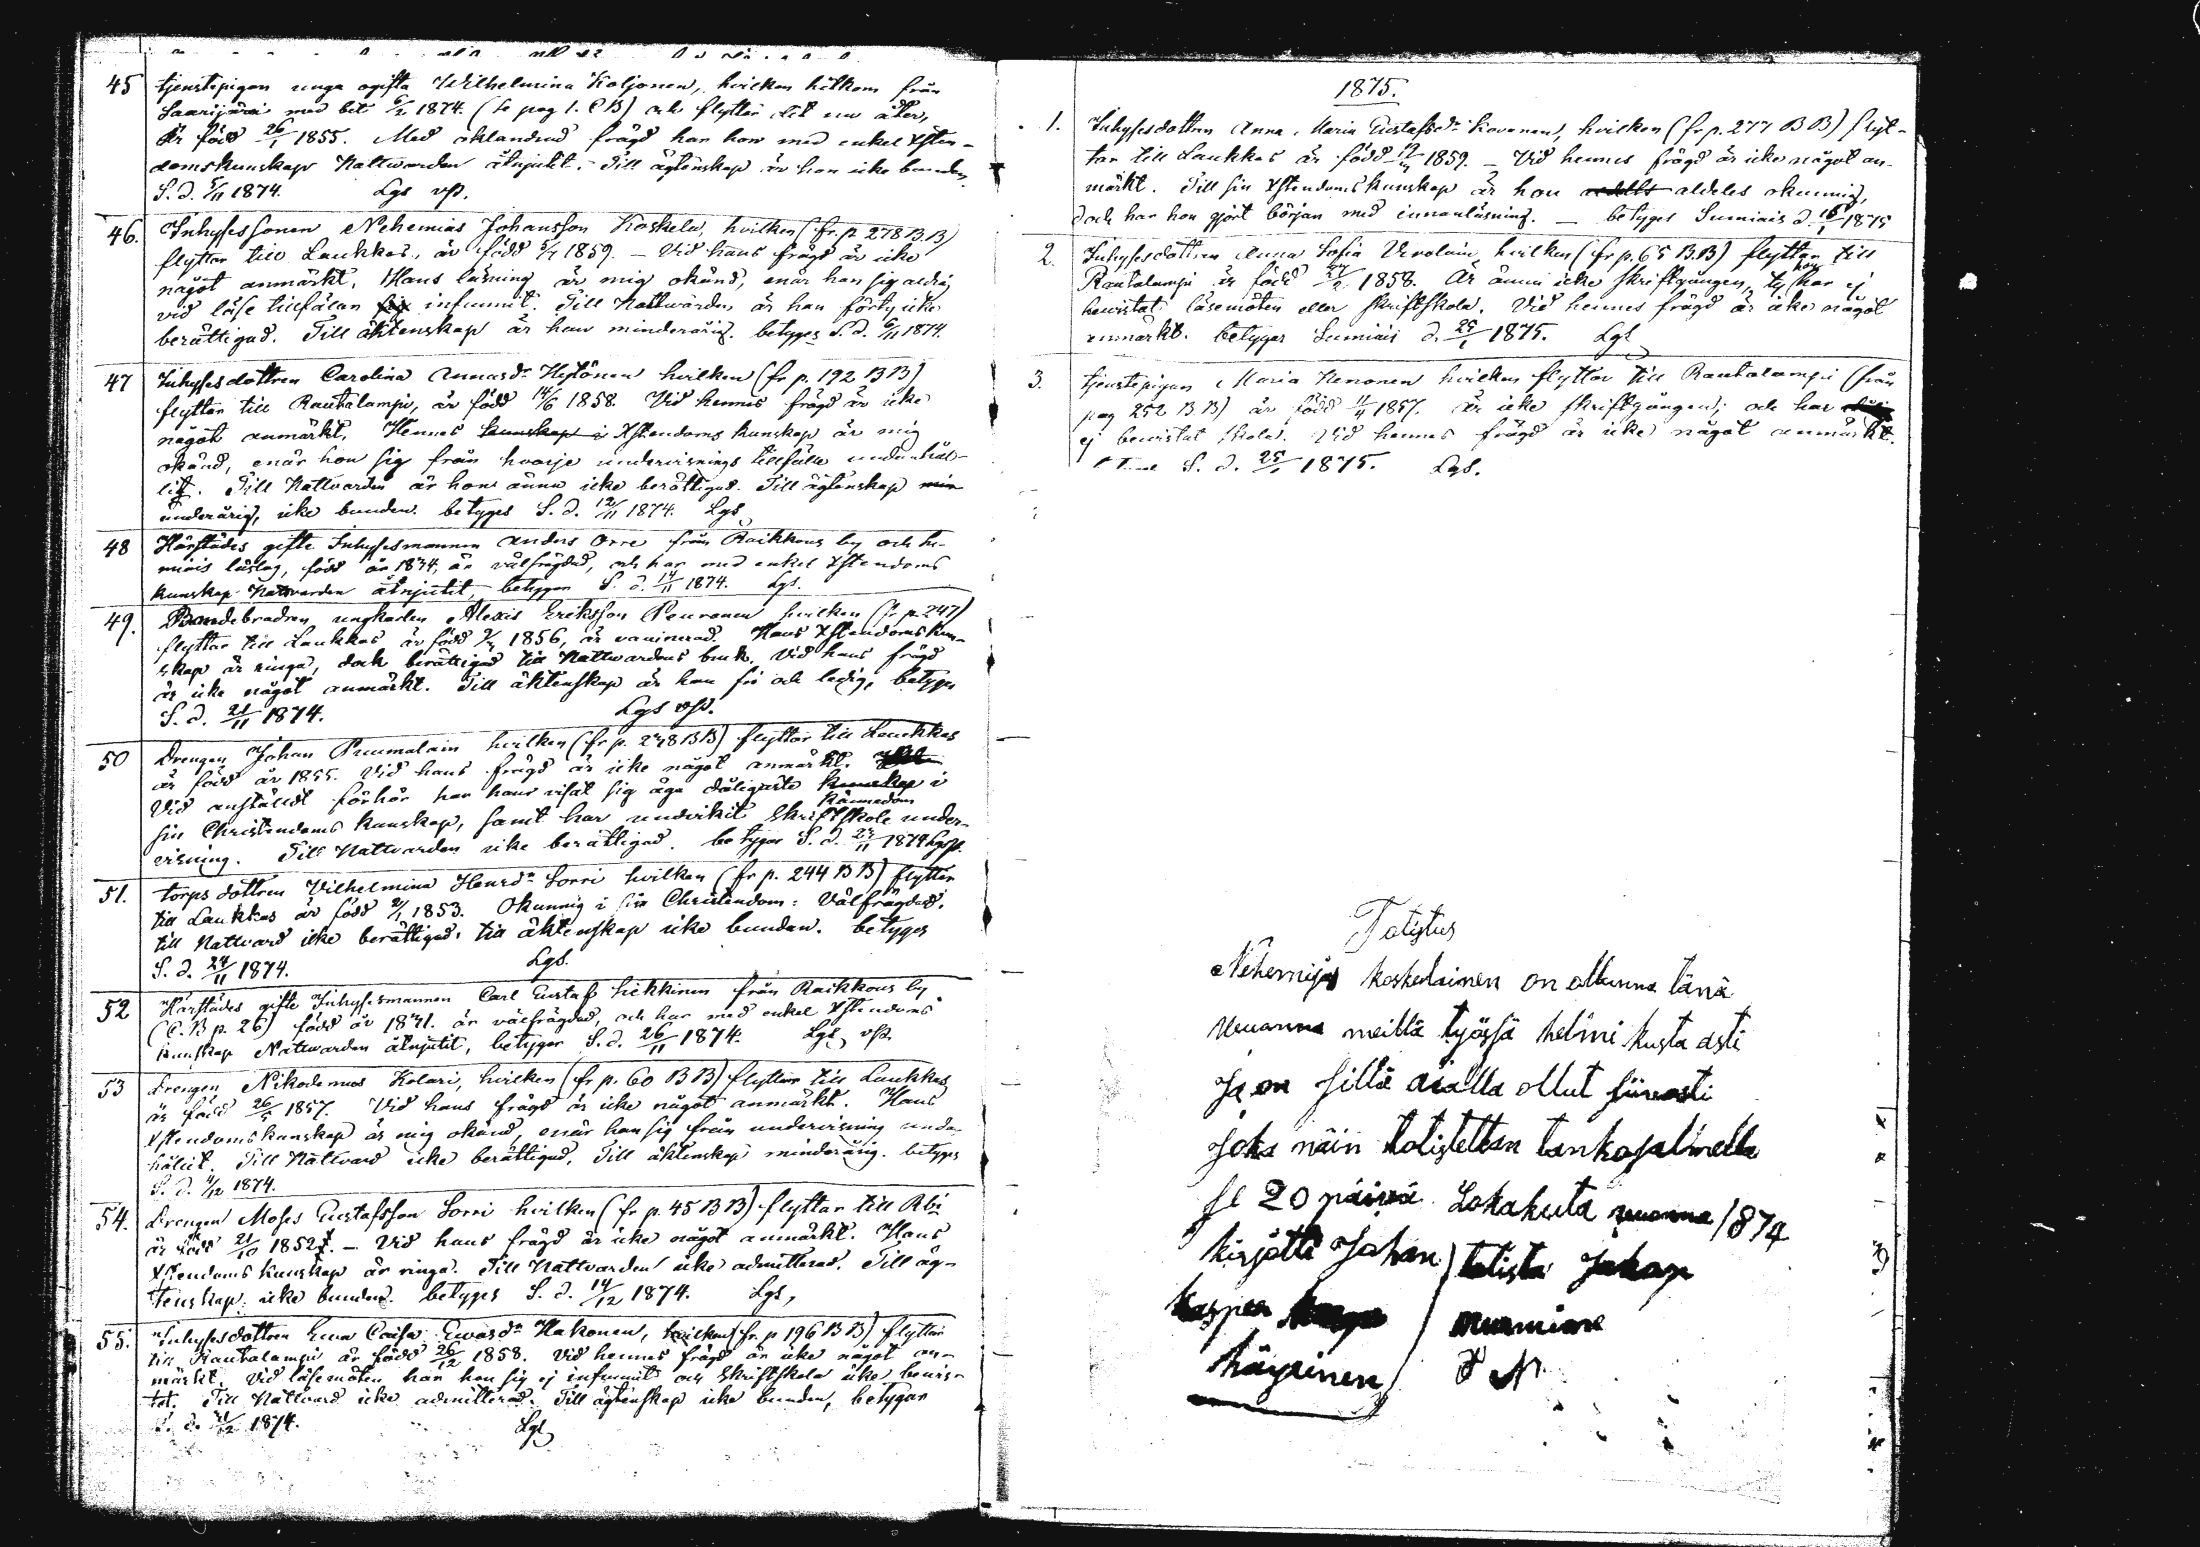 45 tjenstepigan unga ogifta Wilhelmina Koljonen, hvilken hitkom från
Saarijärvi med bet 1874. (se pag 1. CB) och flyttar dit nu åter,
är född 26/1 1855. Med oklandrad frägd har hon med enkel Xsten-
domskunskap Nattwarden åtnjutit. Till ägtenskap är hon icke bunden
S. d. 5/11 1874. Lgs vp.
46. Inhysessonen Nehemias Johansson Koskela, hvilken (fr. p. 278 B.B)
flyttar till Laukkas, är född 1859. – Vid hans frägd är icke
något anmärkt. Hans läsning är mig okänd, enär han sig aldrig
vid läse tillfälen infunnit. Till Nattwarden är han förty icke
berättigad. Till äktenskap är han minderårig. betyges S. d. 6/11 1874.
47 Inhysesdottren Carolina Annasdr Hytönen hvilken (fr p. 192 BB)
flyttar till Rautalampi, är född 14/6 1858. Vid hennes frägd är icke
något anmärkt. Hennes kunskap i Xstendoms kunskap är mig
okänd, enär hon sig från hvarje undervisnings tillfälle undanhål-
lit. Till Nattvarden är hon ännu icke berättigad. Till ägtenskap min
underårig, icke bunden. betyges S. d. 12/11 1874. Lgs
48 Härstädes gifte Inhysesmannen Anders Orre från Raikkous by och
läslag, född år 1834, är välfrägdad, och har med enkel Xstendoms
kunskap Nattvarden åtnjutit, betygar S. d. 14/11 1874. Lgs.
49. Bondebrodren ungkarlen Alexis Eriksson Peuranen hvilken (fr p. 247)
flyttar till Laukkas är född 1856, är vaccinerad. Hans Xstendomskun-
skap är ringa, dock berättigad till Nattvardens bruk. Vid hans frägd
är icke något anmärkt. Till äktenskap är han fri och ledig, betyges
S. d. 21/11 1874. Lgs vp.
50 Drengen Johan Puumalain hvilken (fr p. 278 BB) flyttar till Laukkas
är född år 1855. Vid hans frägd är icke något anmärkt.
Vid anställdt förhör har han visat sig äga dåligaste kunskap i
kännedom
sin Christendoms kunskap, samt har undvikit Skriftskole under-
visning. Till Nattvarden icke berättigad. betygar S. d. 1874 Lgs vp.
51. torps dottren Vilhelmina Henrdr Sorri hvilken (fr p. 244 BB) flyttar
till Laukkas är född 2/1 1853. Okunnig i sin Christendom. Välfrägdad.
till Nattvard icke berättigad. till äktenskap icke bunden. betyges
S. d. 24/11 1874. Lgs.
52 Härstädes gifte Inhysesmannen Carl Gustaf Hekkinen från Raikkous by
(C.B p. 26) född år 1841. är välfrägdad, och har med enkel Xstendoms
kunskap Nattwarden åtnjutit, betygar S. d. 26/11 1874. Lgs vp.
53 Drengen Nikodemus Kolari, hvilken (fr p. 60 BB) flyttar till Laukkas,
är född 26/5 1857. Vid hans frägd är icke något anmärkt. Hans
Xstendomskunskap är mig okänd, enär han sig från undervisning unda-
hållit. Till Nattvard icke berättigad. Till äktenskap minderårig. betyges
S. d. 4/12 1874.
54. Drengen Moses Gustafsson Sorri hvilken (fr p. 45 BB) flyttar till Abi
är född 21/10 1852. – Vid hans frägd är icke något anmärkt. Hans
Xstendoms kunskap är ringa. Till Nattvarden icke admitterad. Till äg-
tenskap icke bunden. betyges S. d. 14/12 1874. Lgs,
55. Inhysesdottren Ewa Caisa Ewasdr Hakonen, hvilken (fr. p 196 BB) flyttar
till Rautalampi är född 26/12 1858. Vid hennes frägd är icke något an-
märkt. Vid läsemöten har hon sig ej infunnit och skriftskola icke bevis-
tat. Till Nattvard icke admitterad. Till ägtenskap icke bunden, betygar
S. d. 1874. Lgs
1875.
1. Inhysesdottren Anna Maria Gustafsdr Kovanen, hvilken (fr p. 277 BB) flyt-
tar till Laukkas är född 1859. – Vid hennes frägd är icke något an-
märkt. Till sin Xstendoms kunskap är hon aldeles okunnig,
dock har hon gjort början med innanläsning. – betyges Sumiais d. 1875
2. Inhysesdottren Anna Sofia Urvolain, hvilken (fr p. 65 B.B) flyttar till
hon
Rautalampi är född 1858. Är ännu icke skriftgången, ty har ej
bevistat läsemöten eller skriftskola. Vid hennes frägd är icke något
anmärkt. betyges Sumiais d. 25/1 1875. Lgs
3. tjenstepigan Maria Nenonen hvilken flyttar till Rautalampi (från
pag 252 BB) är född 1857. Är icke skriftgången, och har
ej bewistat skola. Vid hennes frägd är icke något anmärkt.
S. d. 25/1 1875. Lgs.
Totistus
Nehemijas koskelainen on ollunna tänä
vuanna meillä työssä helmi kusta asti
Ja on sillä aialla ollut siivosti
Joka näin totistettan tankosalmella
se 20 päivä Lokakuta vuanna 1874
kirjotti Johan totista Jakop
kasper muuriane
häyrinen J N